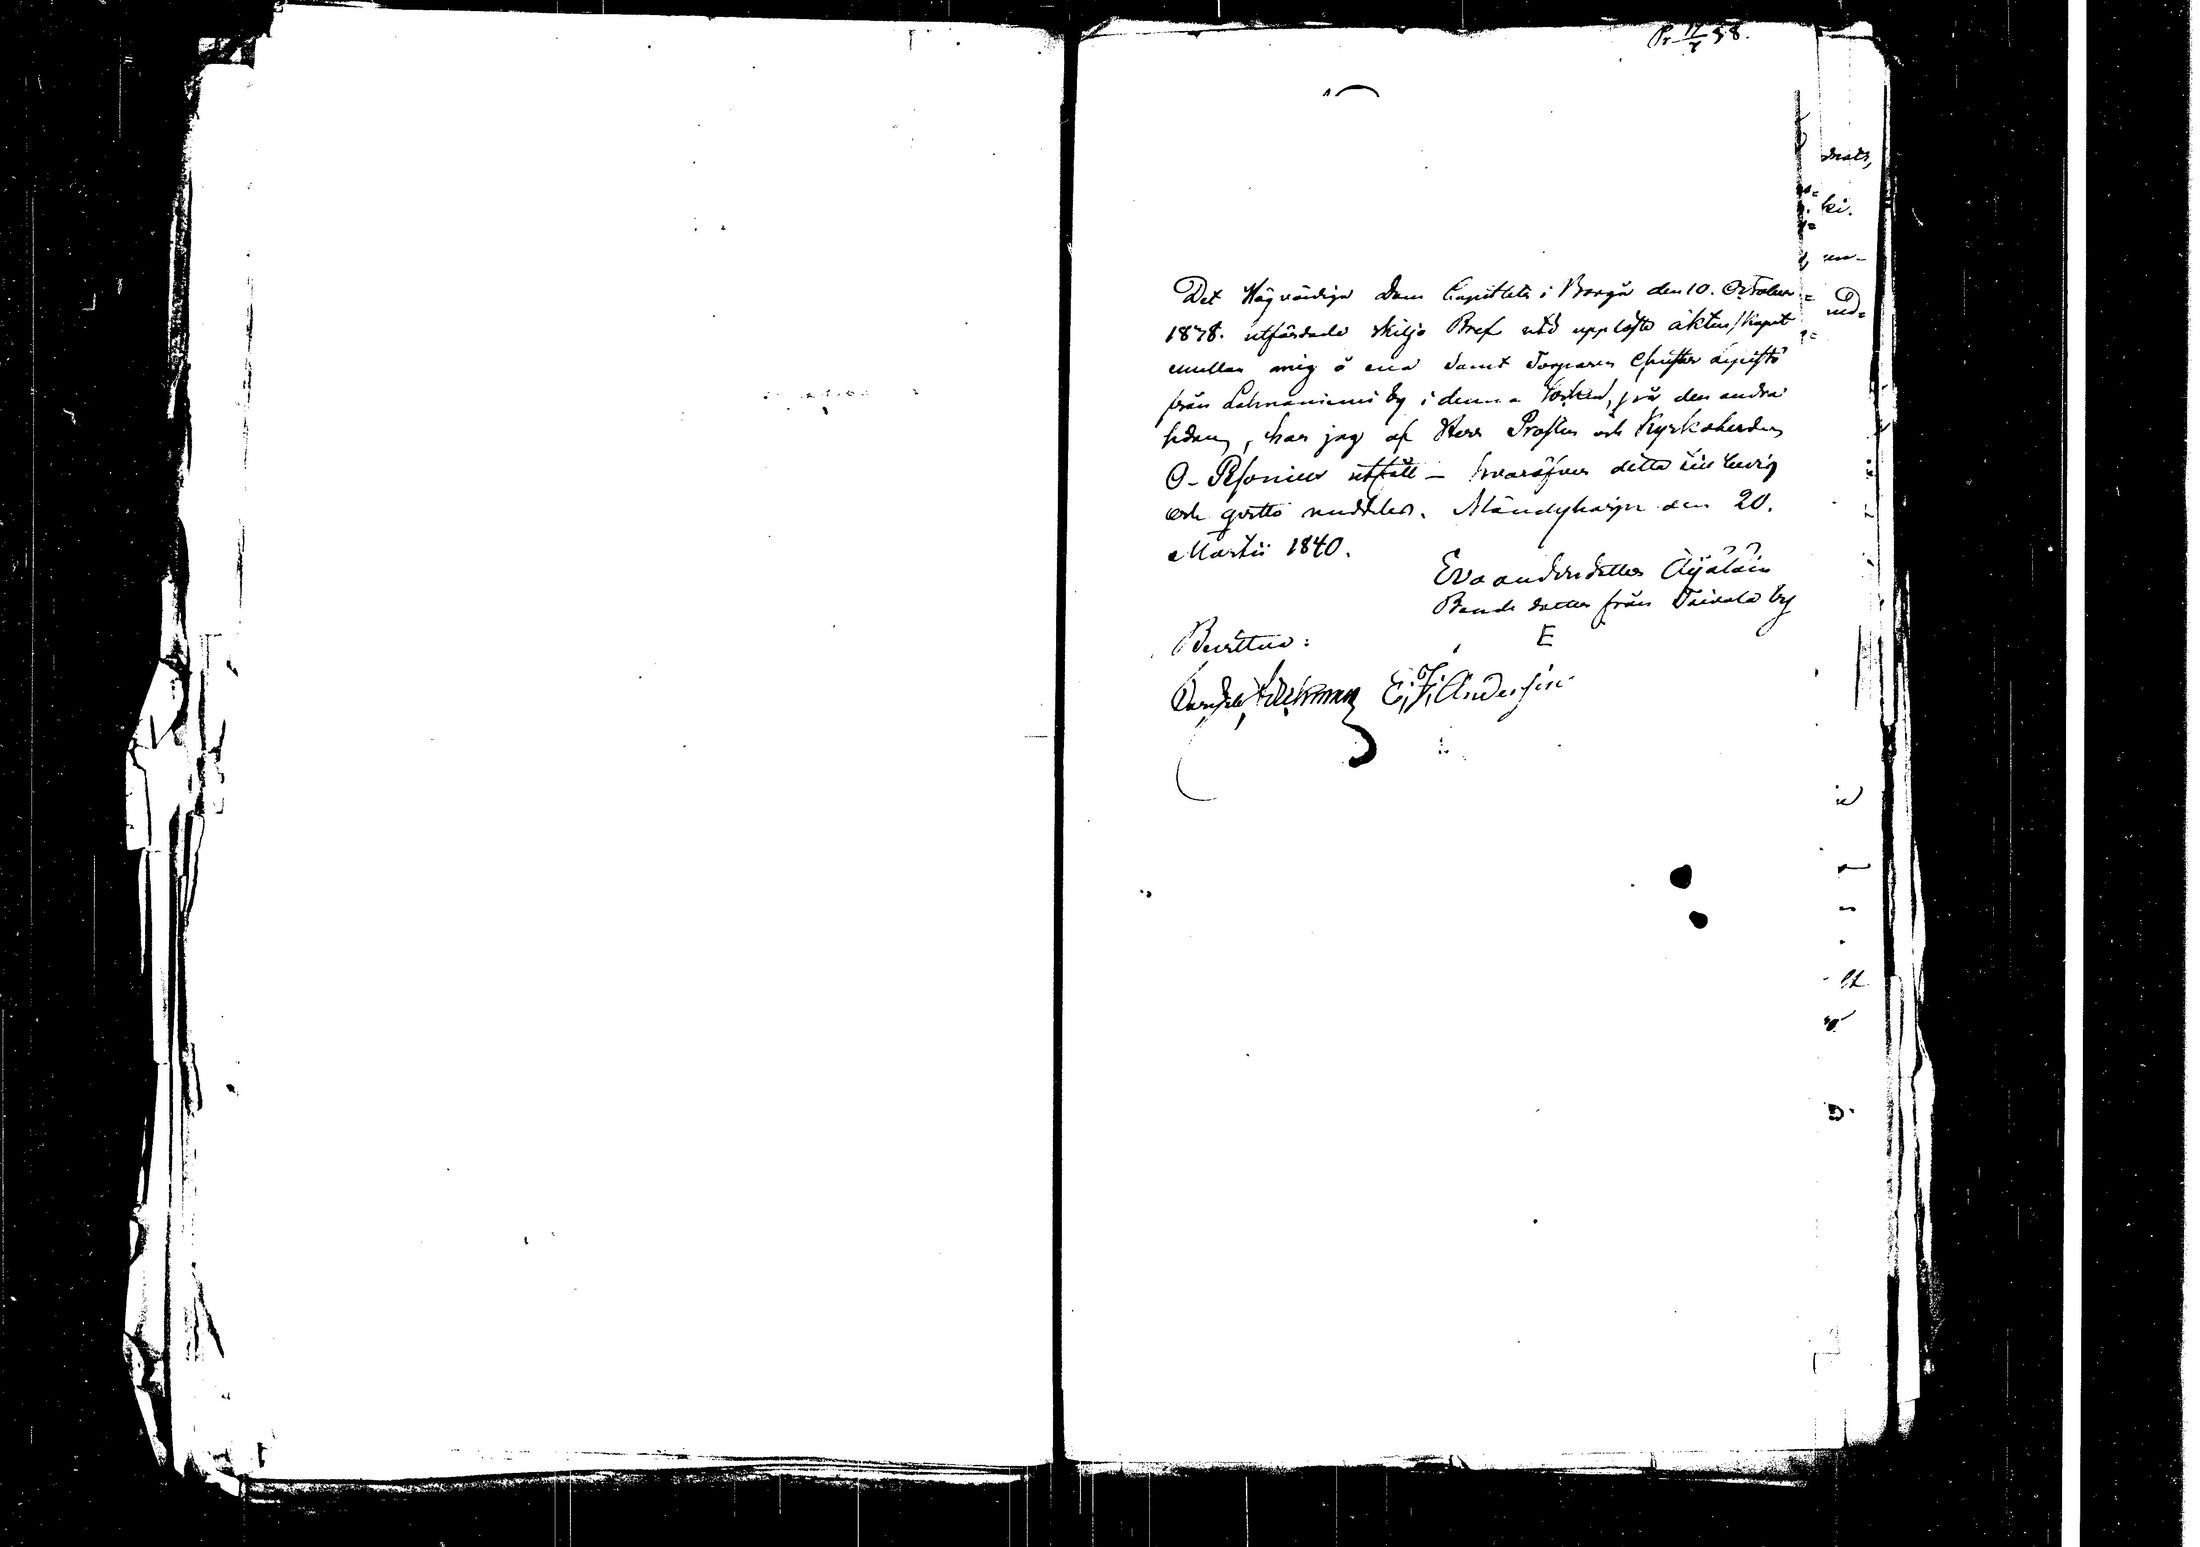 Pr 17/7 58.
Det Högvördiga Dom Capitlets i Borgå den 10. October
1838. utfärdade skiljo Bref vid upplöste äktenskapet
emellan mig å ena samt Torparen Christer Lepistö
från Lahnaniemi by i denna Socken, på den andra
sidan, har jag af Herr Prosten och Kyrkoherden
O. Pesonius utfått – hvaröfver detta till bevis
och qvitto meddelas. Mändyharju den 20.
Martii 1840.
Eva andersdotter Äijäläin
Bonde dotter från Toivola by
E
Bevittna:
E. F. Andersin